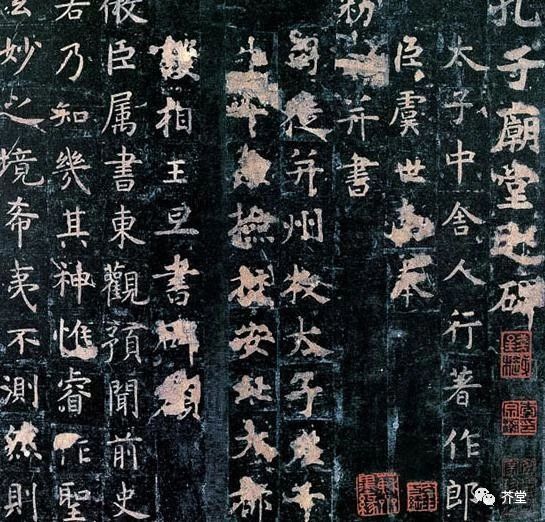 孔子廟堂之碑
太子中舍人行著作郎
臣虞世南奉
勑 并書
司徒并州牧太子左千
牛率兼撿挍安北大都
護相王旦書碑額
臣属書東觀預聞前史
若乃知幾其神惟睿作聖
妙之境希夷不測然則
芥堂